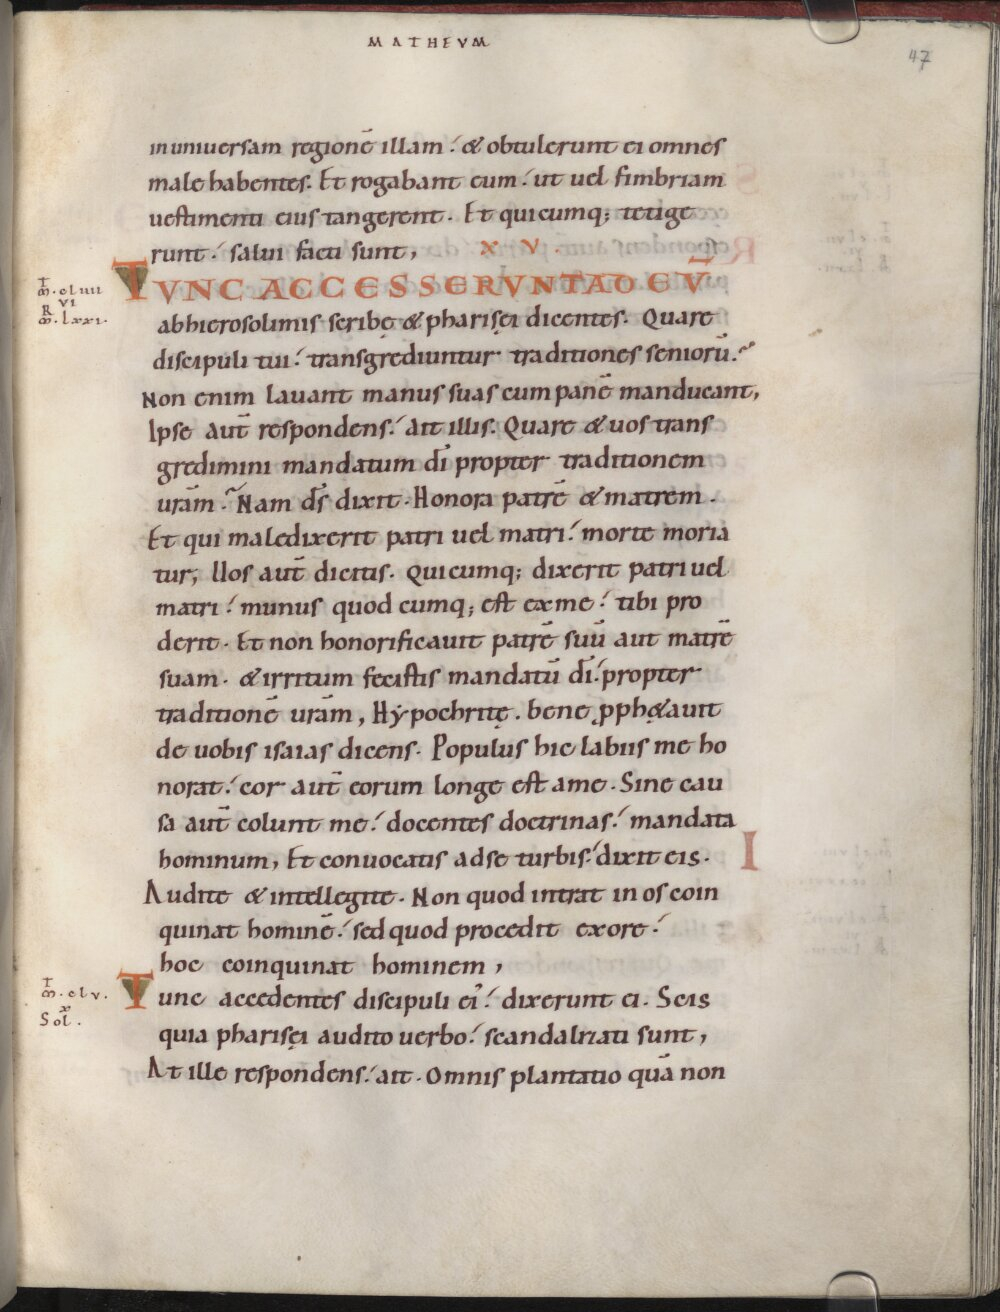 MATHEVM
47
in uniuersam regionē illam·́ & obtulerunt ei omnes
male habentes. Et rogabant eum·́ ut uel fimbriam
uestimenti eius tangerent. Et quicumq; tetige
runt·́ salui facti sunt, XV.
TUNC ACCESSERUNT AD EŪ
m̄.clиιι
VI
m̄.lxxi.
ab hierosolimis scribę & pharisęi dicentes. Quare
discipuli tui·́ transgrediuntur traditiones seniorū.
Non enim lauant manus suas cum panē manducant,
Ipse aut̄ respondens·́ ait illis. Quare & uos trans
gredimini mandatum dī propter traditionem
urām. Nam d̄s dixit. Honora patrē & matrem.
Et qui maledixerit patri uel matri·́ morte moria
tur, Uos aut̄ dicitis. Quicumq; dixerit patri uel
matri·́ munus quod cumq; est ex me·́ tibi pro
derit. Et non honorificauit patrē suū aut matrē
suam. & irritum fecistis mandatū dī·́ propter
traditionē urām, Hẏpochritę. bene ꝓph&auit
de uobis isaias dicens. Populus hic labiis me ho
norat·́ cor aut̄ eorum longe est a me. Sine cau
sa aut̄ colunt me·́ docentes doctrinas·́ mandata
hominum, Et conuocatis ad se turbis·́ dixit eis.
Audite & intellegite. Non quod intrat in os coin
quinat hominē·́ sed quod procedit ex ore·́
hoc coinquinat hominem,
m̄.clv.
x
Sol.
Tunc accedentes discipuli ei᾽·́ dixerunt ei. Scis
quia pharisęi audito uerbo·́ scandalizati sunt,
At ille respondens·́ ait. Omnis plantatio quā non